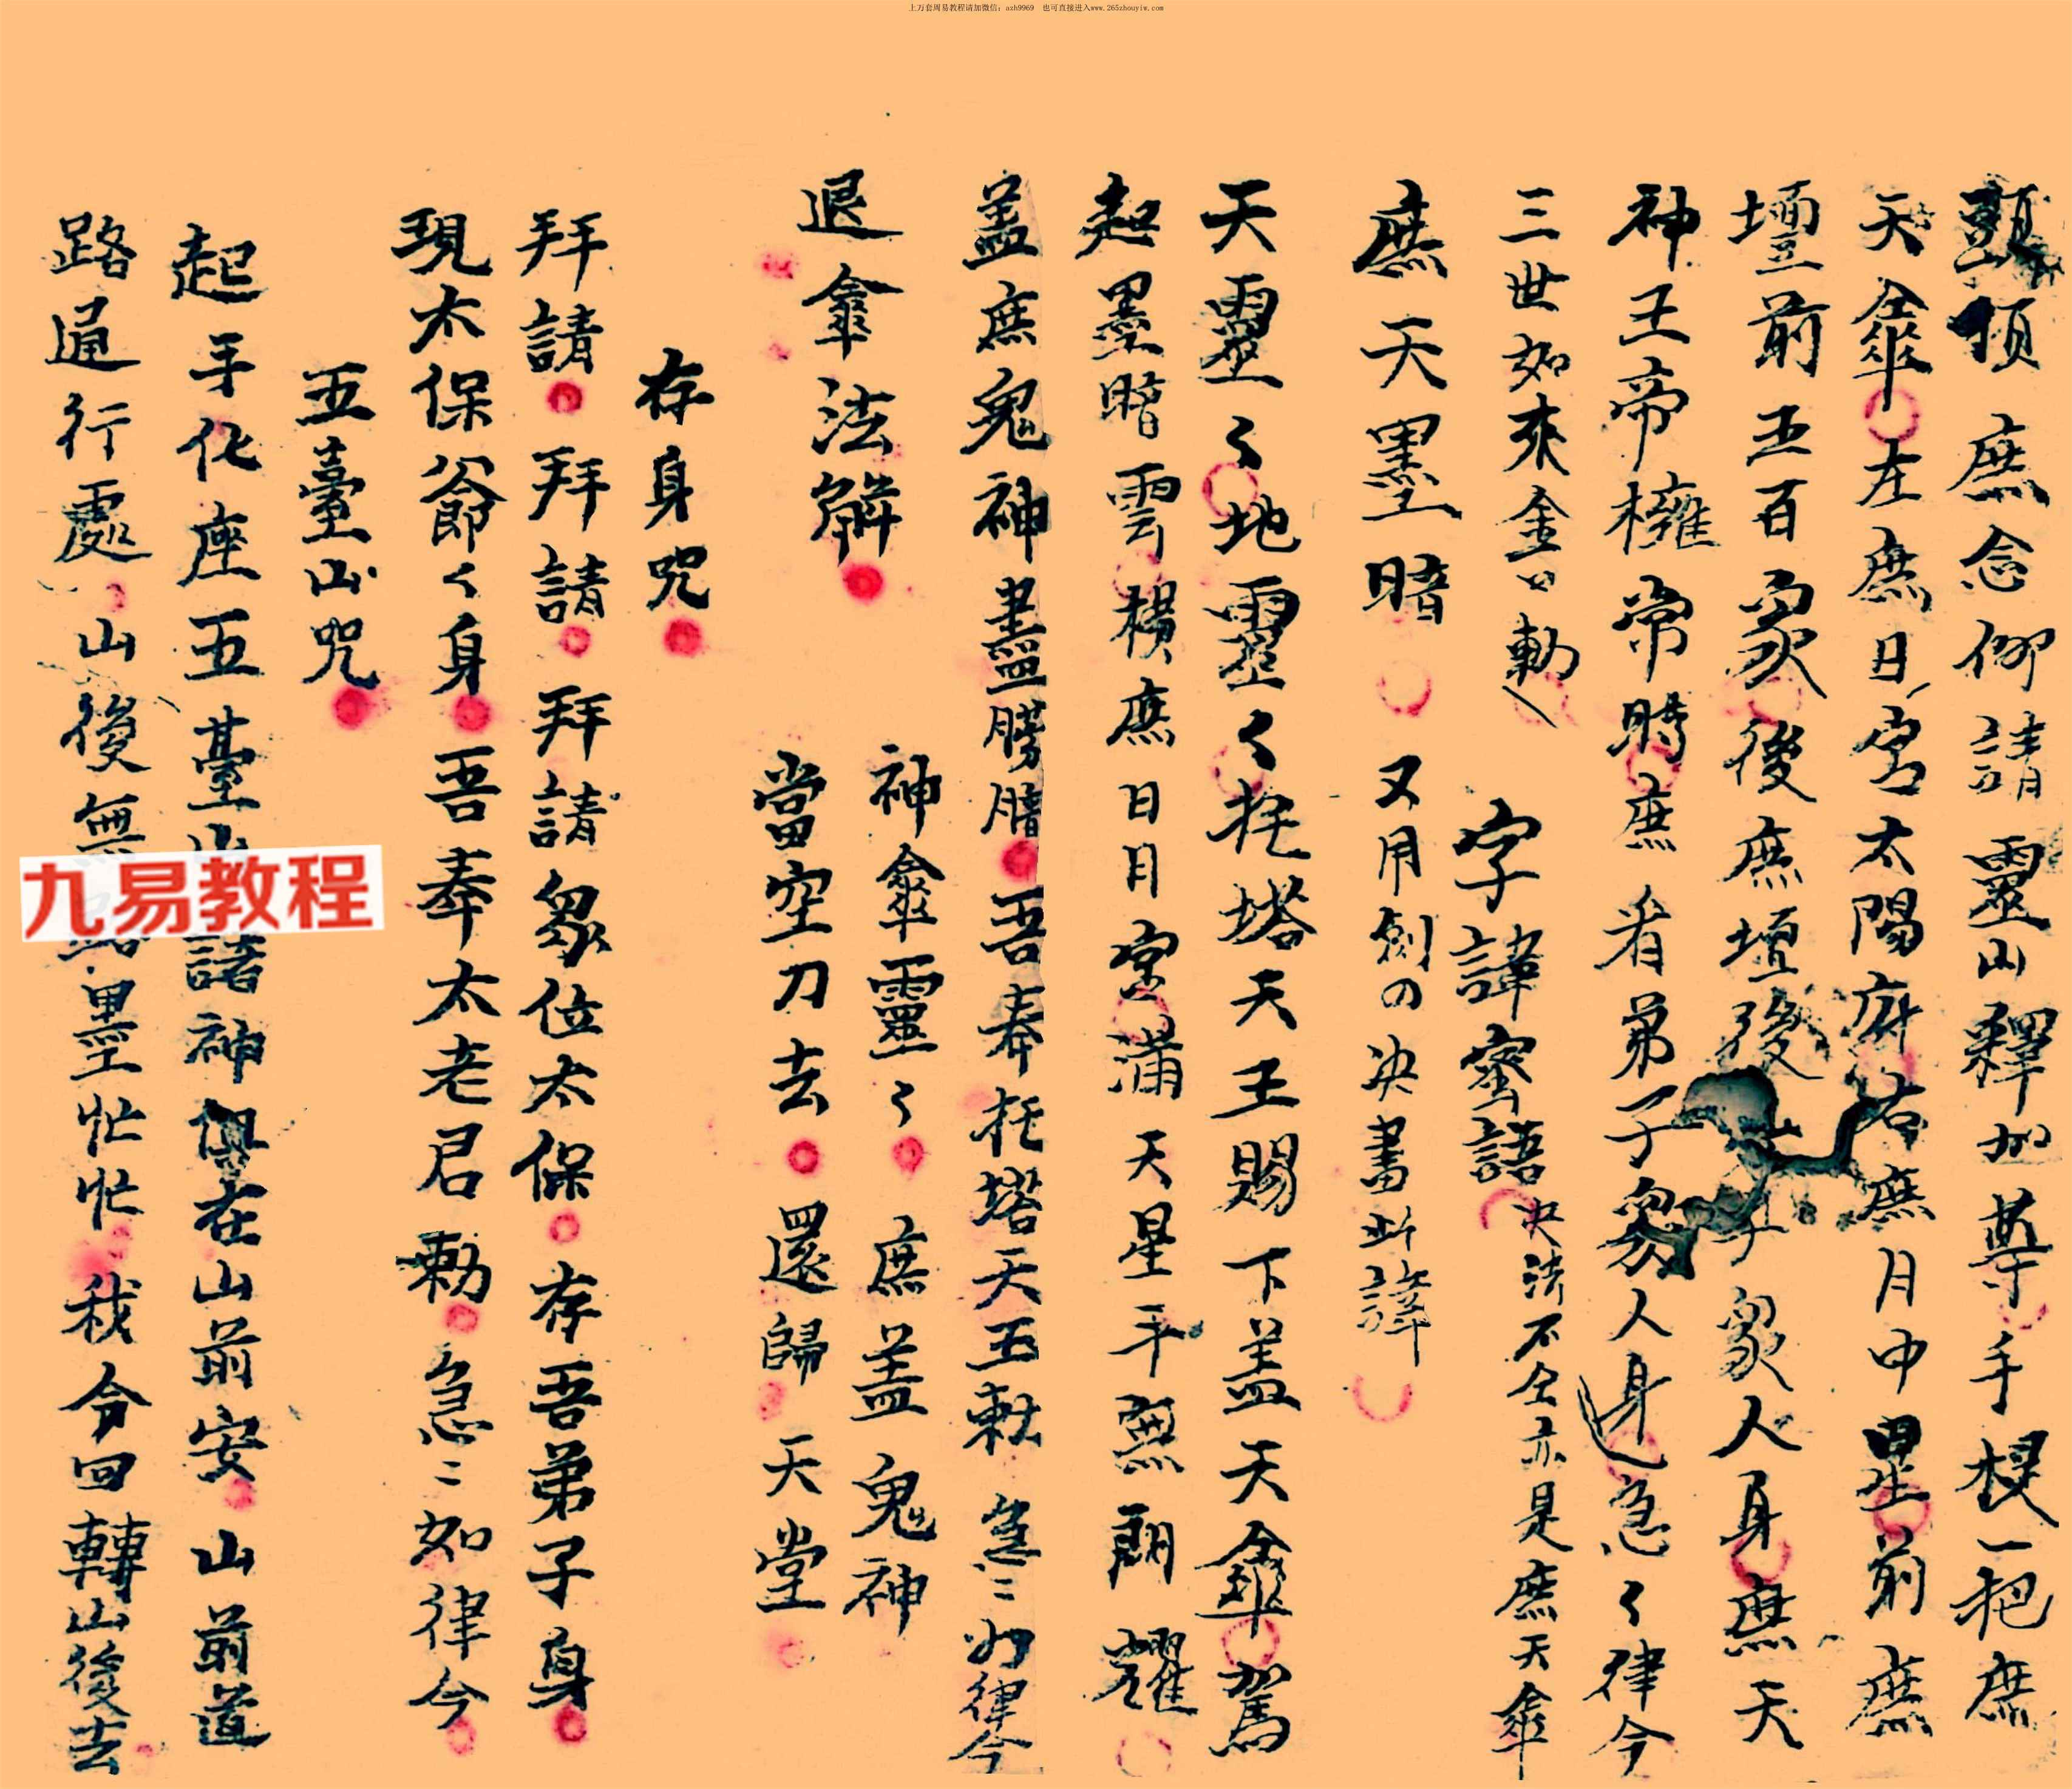 上万套周易教程请加微信：azh9969　也可直接进入www.265zhouyiw.com
頭頂庶念仰請靈山釋加尊手根一把庶
天傘左庶日宮太陽府右庶月中星前庶
壇前五百众後庶壇後子众人身庶天
神王帝擁常時庶看弟子众人身急〻律令
三世如來金口勅
字諱密語決法不全亦是庶天傘
庶天墨暗
又用劍の决書此諱
天靈〻地靈〻托塔天王賜下盖天傘駕
起墨暗雲横庶日月宝满天星斗無朗耀
盖庶鬼神盡朦暗吾奉托塔天王勅急〻如律令
退傘法觧
神傘靈〻庶盖鬼神
當空刀去還歸天堂
存身咒
拜請拜請拜請衆位太保存吾弟子身
現太保爺〻身吾奉太老君勅急〻如律令
五臺山咒
起手化座五臺山諸神俱在山前安山前道
路通行處山後無路墨忙忙我今回轉山後去
九易教程